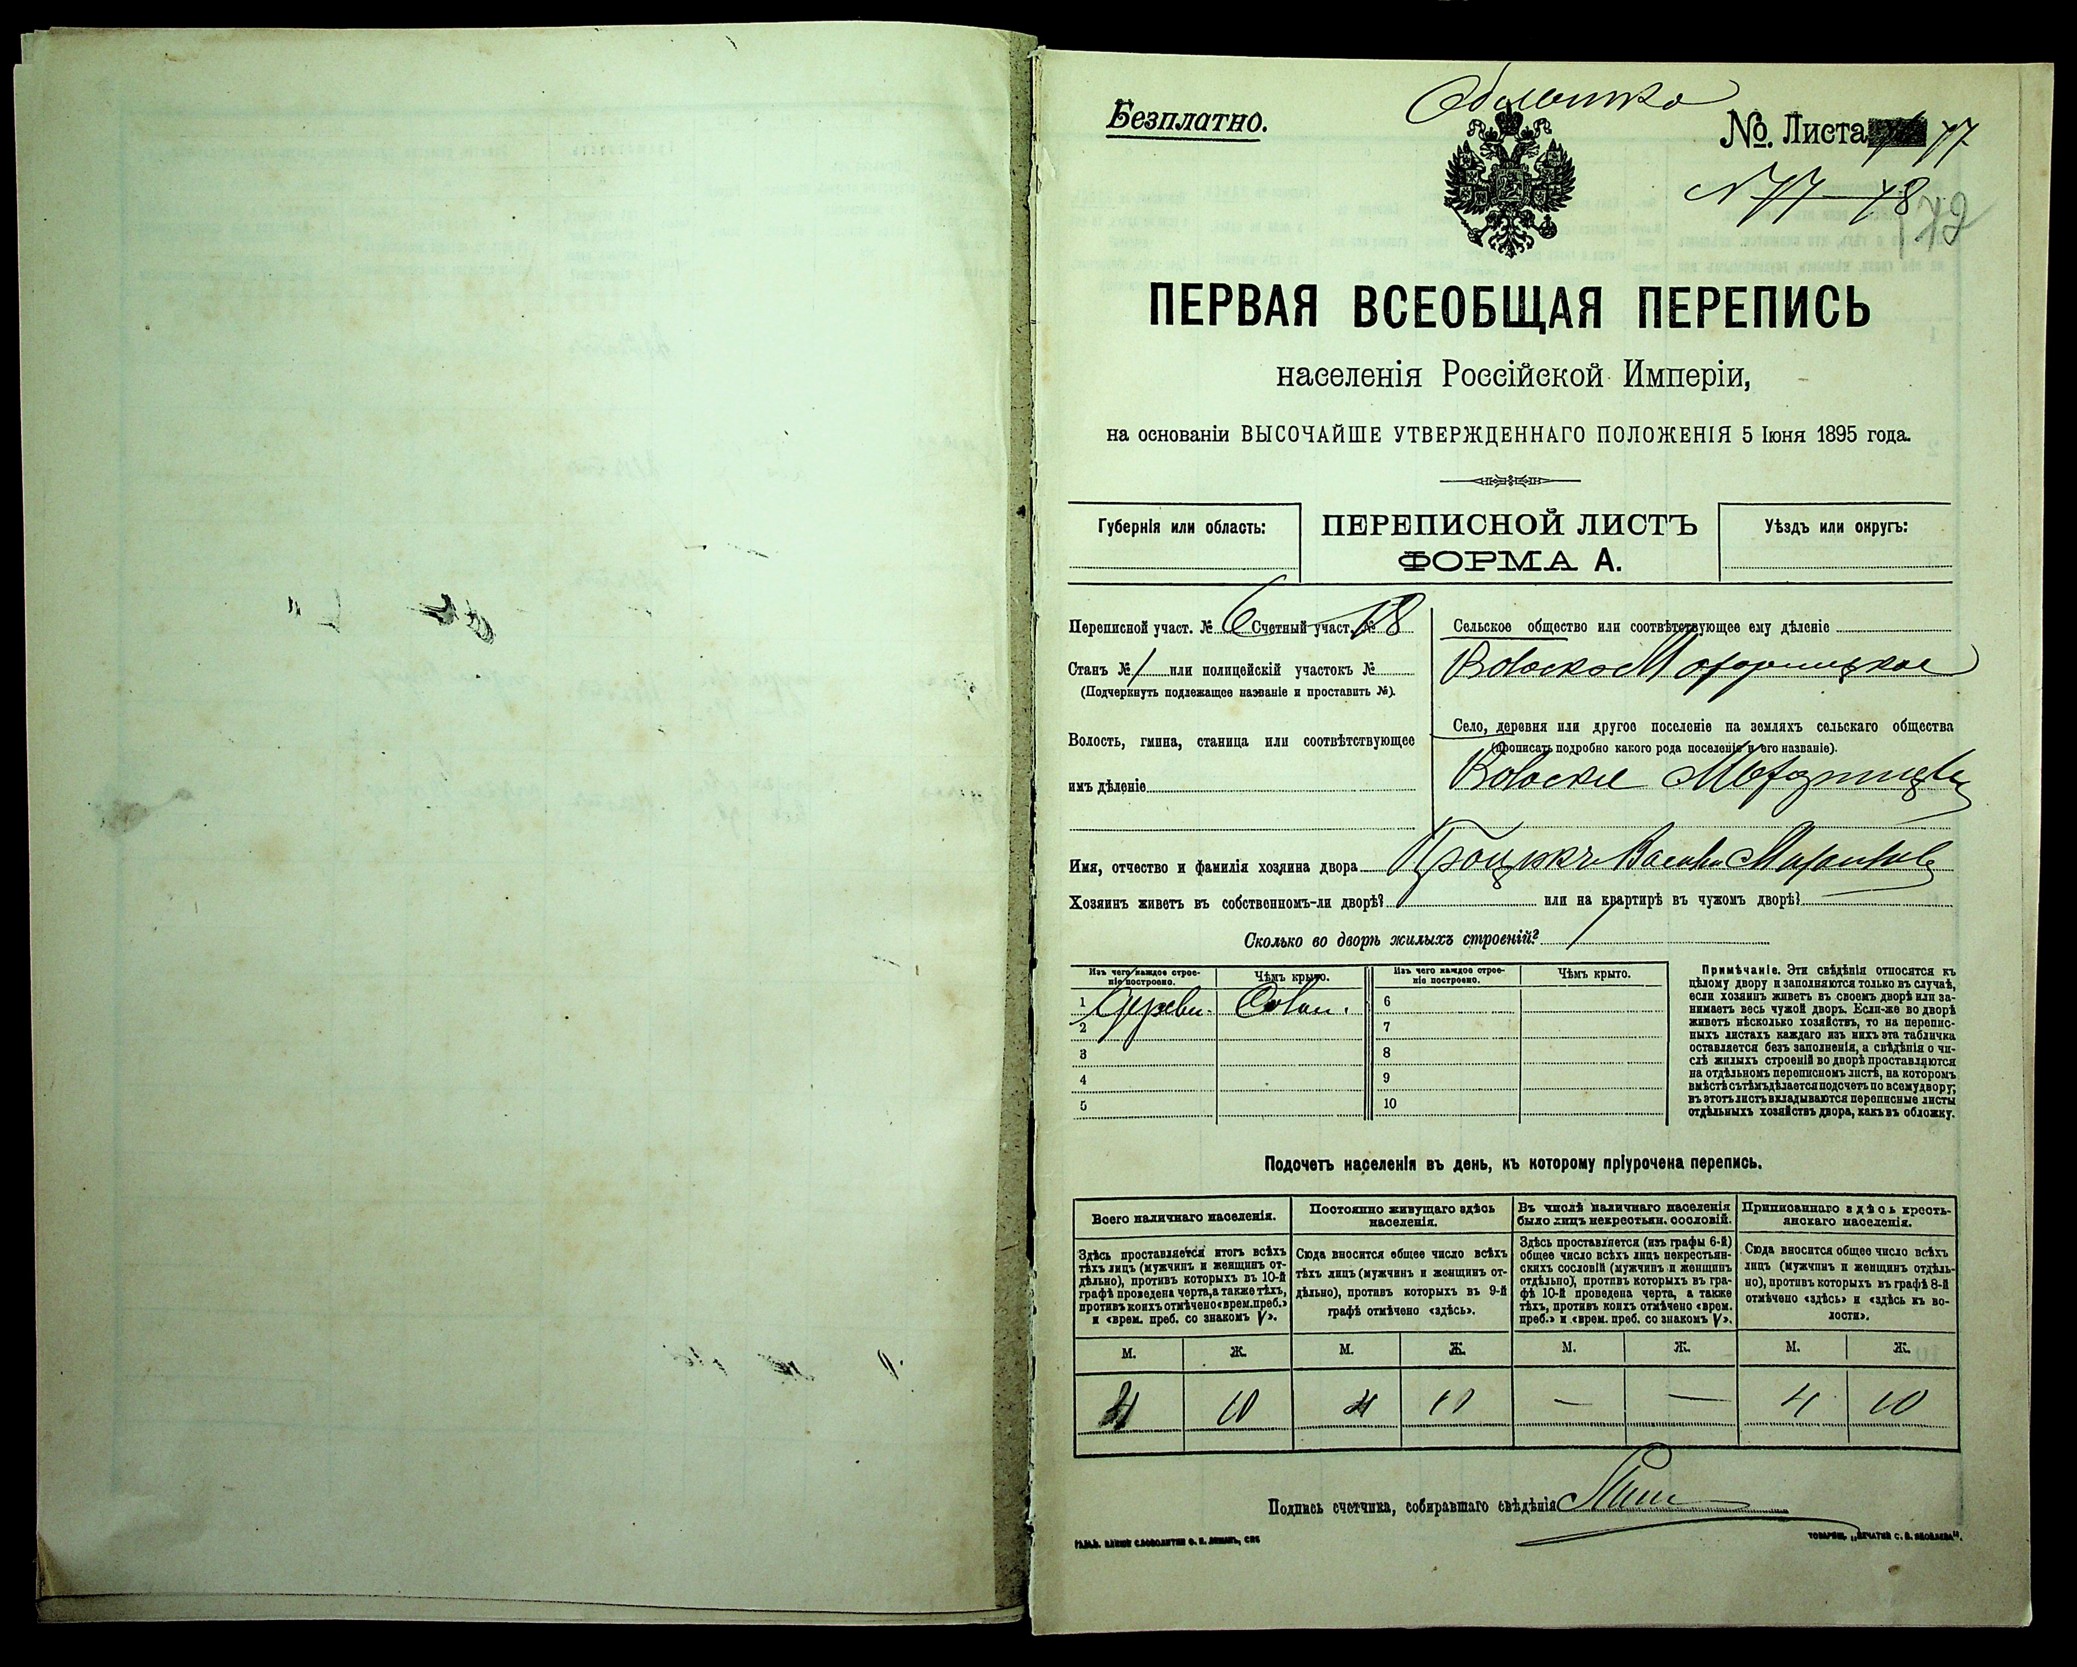 Обложка
Безплатно.
№ Листа 77
№ 77—78
ПЕРВАЯ ВСЕОБЩАЯ ПЕРЕПИСЬ
населенія Россійской Имперіи,
на основаніи ВЫСОЧАЙШЕ УТВЕРЖДЕННАГО ПОЛОЖЕНІЯ 5 Іюня 1895 года.
Губернія или область:
ПЕРЕПИСНОЙ ЛИСТЪ
ФОРМА А.
Уѣздъ или округъ:
Переписной участ. № 6 Счетный участ. № 18
Станъ № 1 или полицейскій участокъ №
(Подчеркнуть подлежащее названіе и проставить №).
Волость, гмина, станица или соотвѣтствующее
имъ дѣленіе
Сельское общество или соотвѣтствующее ему дѣленіе
Село, деревня или другое поселеніе на земляхъ сельскаго общества
(прописать подробно какого рода поселеніе и его названіе).
Имя, отчество и фамилія хозяина двора
Хозяинъ живетъ въ собственномъ-ли дворѣ? или на квартирѣ въ чужомъ дворѣ?
Сколько во дворѣ жилыхъ строеній? 1
Изъ чего каждое строе-
ніе построено.
Чѣмъ крыто.
Изъ чего каждое строе-
ніе построено.
Чѣмъ крыто.
1 Деревн. Солом. 6
2 7
3 8
4 9
5 10
Примѣчаніе. Эти свѣдѣнія относятся къ
цѣлому двору и заполняются только въ случаѣ,
если хозяинъ живетъ въ своемъ дворѣ или за-
нимаетъ весь чужой дворъ. Если-же во дворѣ
живетъ нѣсколько хозяйствъ, то на перепис-
ныхъ листахъ каждаго изъ нихъ эта табличка
оставляется безъ заполненія, а свѣдѣнія о чи-
слѣ жилыхъ строеній во дворѣ проставляются
на отдѣльномъ переписномъ листѣ, на которомъ
вмѣстѣ съ тѣмъ дѣлается подсчетъ по всему двору;
въ этотъ листъ вкладываются переписные листы
отдѣльныхъ хозяйствъ двора, какъ въ обложку.
Подсчетъ населенія въ день, къ которому пріурочена перепись.
Всего наличнаго населенія.
Здѣсь проставляется итогъ всѣхъ
тѣхъ лицъ (мужчинъ и женщинъ от-
дѣльно), противъ которыхъ въ 10-й
графѣ проведена черта, а также тѣхъ,
противъ коихъ отмѣчено «врем. преб.»
и «врем. преб. со знакомъ V».
Постоянно живущаго здѣсь
населенія.
Сюда вносится общее число всѣхъ
тѣхъ лицъ (мужчинъ и женщинъ от-
дѣльно), противъ которыхъ въ 9-й
графѣ отмѣчено «здѣсь».
Въ числѣ наличнаго населенія
было лицъ некрестьян. сословій.
Здѣсь проставляется (изъ графы 6-й)
общее число всѣхъ лицъ некрестьян-
скихъ сословій (мужчинъ и женщинъ
отдѣльно), противъ которыхъ въ гра-
фѣ 10-й проведена черта, а также
тѣхъ, противъ коихъ отмѣчено «врем.
преб.» и «врем. преб. со знакомъ V».
Приписаннаго здѣсь кресть-
янскаго населенія.
Сюда вносится общее число всѣхъ
лицъ (мужчинъ и женщинъ отдѣль-
но), противъ которыхъ въ графѣ 8-й
отмѣчено «здѣсь» и «здѣсь къ во-
лости».
М. Ж. М. Ж. М. Ж. М. Ж.
4 10 4 10 — — 4 10
Подпись счетчика, собиравшаго свѣдѣнія